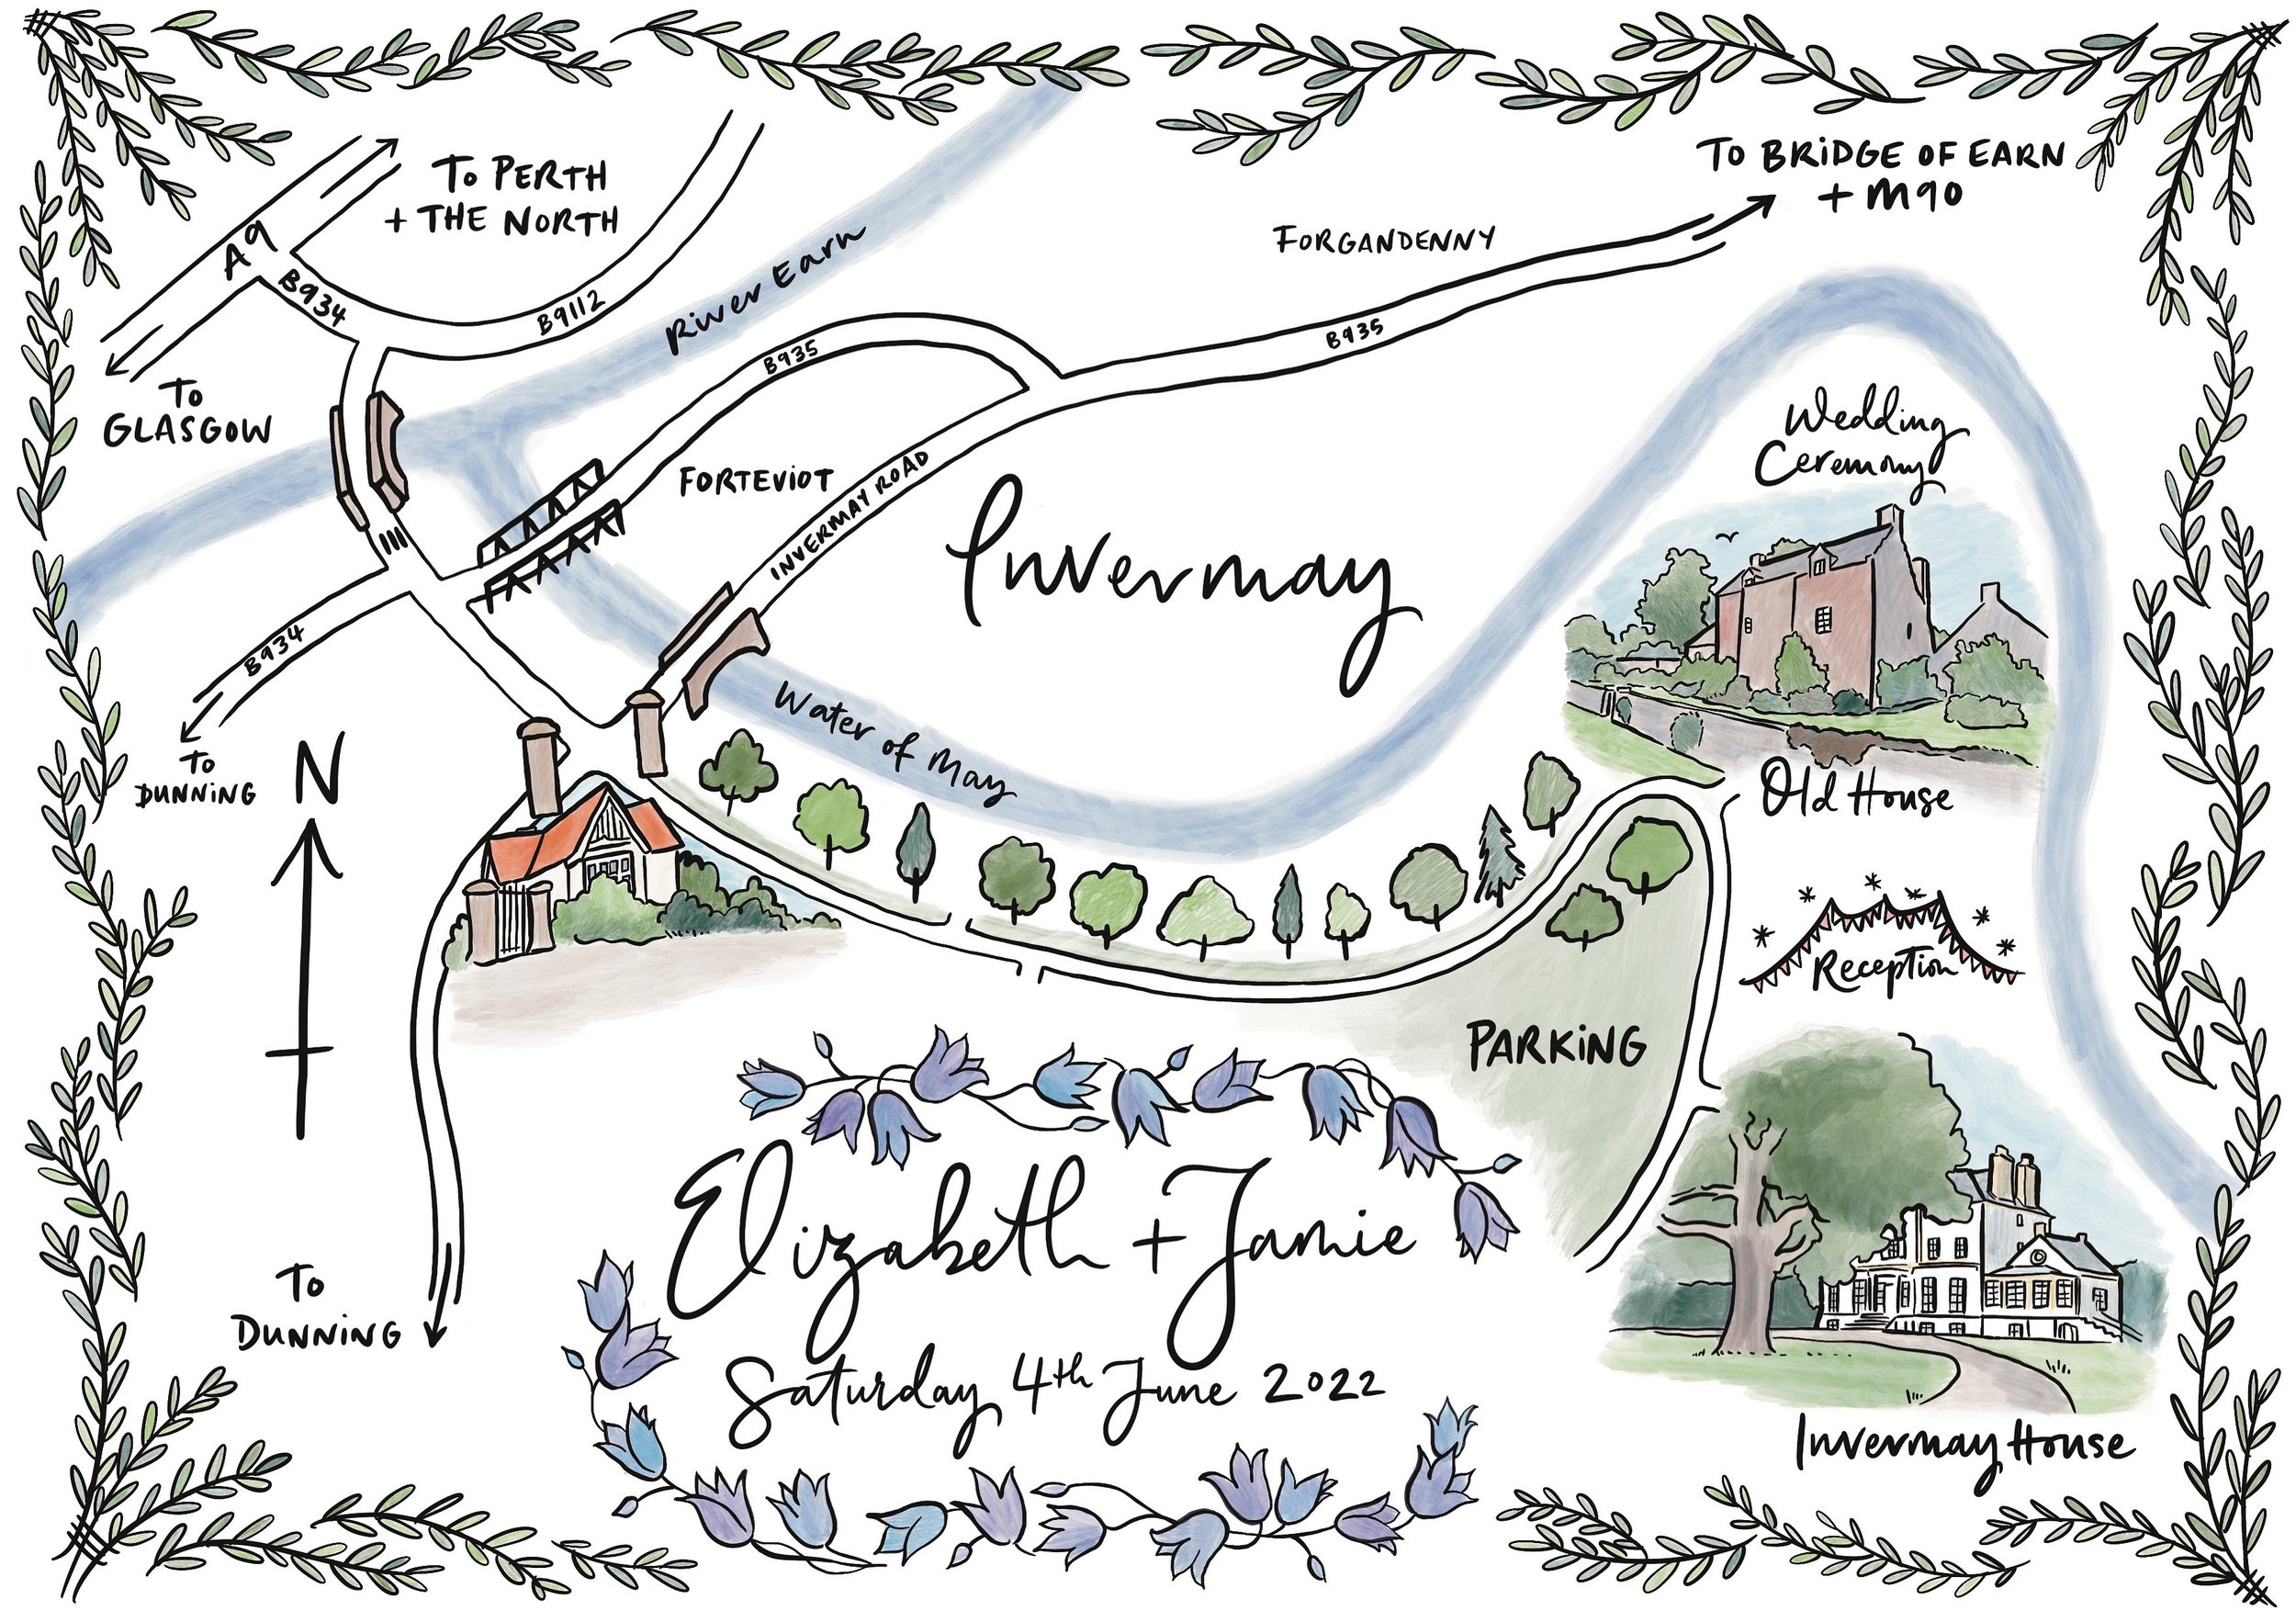 To PERTH
+ THE NORTH
A9
B934
B9112
River Earn
To
GLASGOW
To BRiDGE OF EARN
+ M90
FORGANDENNY
B935
B935
FORTEViOT
INVERMAY ROAD
Invermay
Wedding
Ceremony
Old House
B934
To
DUNNiNG
N
Water of May
Reception
PARKiNG
Elizabeth + Jamie
Saturday 4th June 2022
To
DUNNiNG
Invermay House